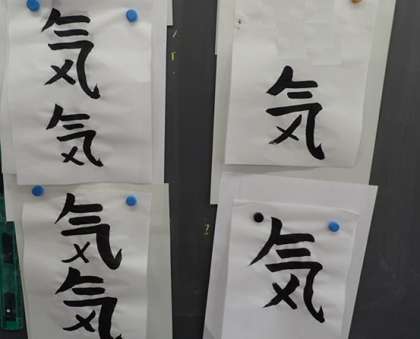 気
気
気
気
気
気